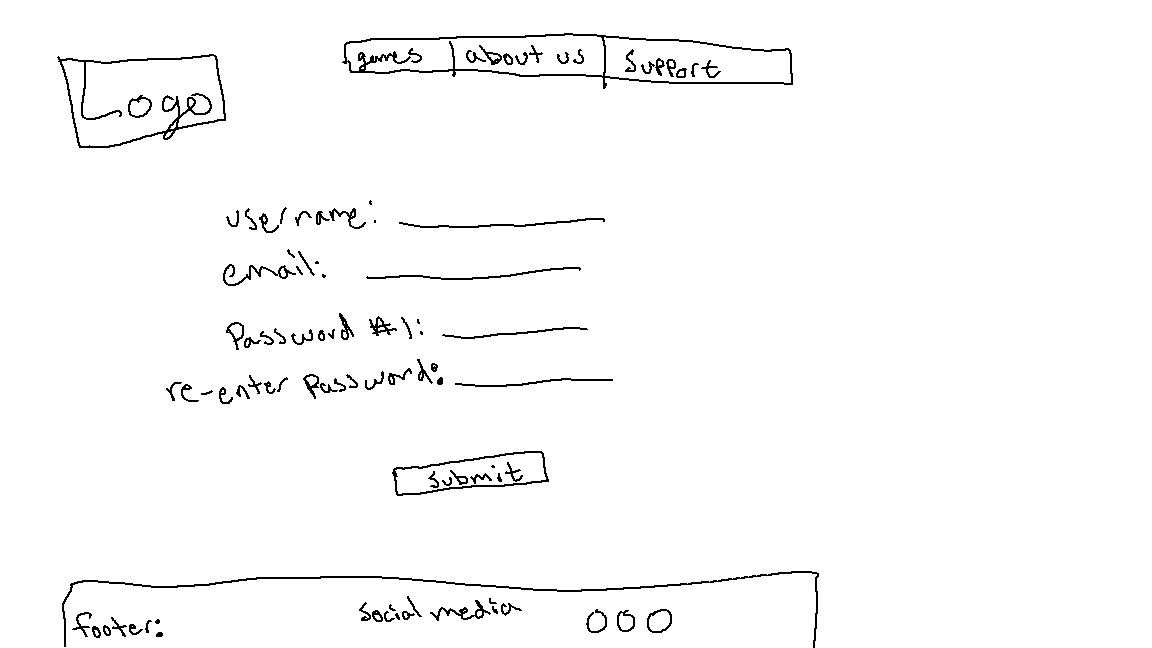 games about us Support
Logo
username:
email:
Password #1:
re-enter Password:
Submit
footer: Social media